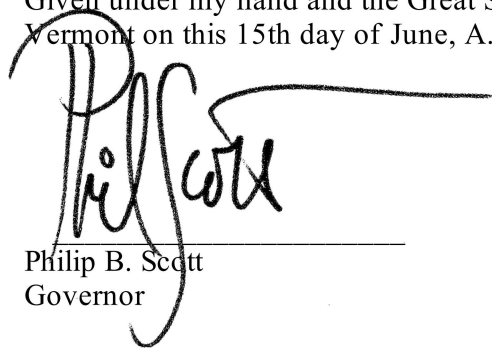 Given under my hand and the Great S
Vermont on this 15th day of June, A.
Phil Scott
Philip B. Scott
Governor